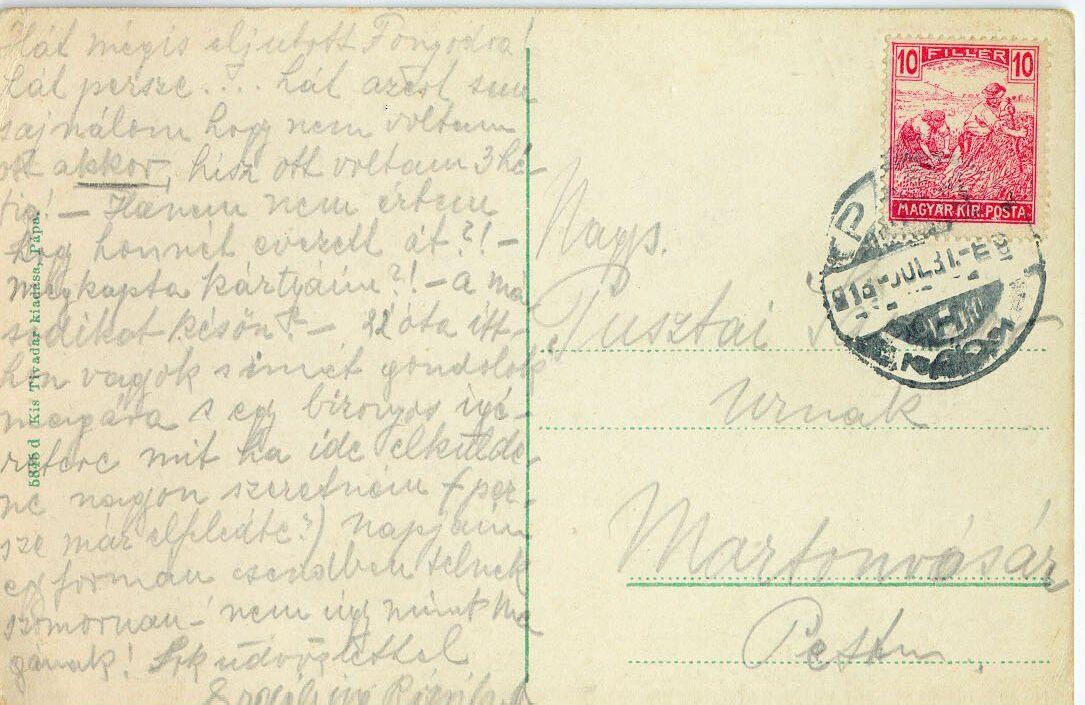 Hát mégis eljutott Fonyodra!
hát persze.... hát azért sem
sajnálom hogy nem voltam
ott akkor, hisz ott voltam 3 hé-
tig! – Hanem nem értem
hogy honnet evezett át?! –
Megkapta kártyáim?! – a má
sodikat későn? – 22 óta itt-
hon vagyok s ismét gondolok
magára s egy bizonyos igé-
retére mit ha ide elkülde-
ne nagyon szeretném (per-
sze már elfeledte?) napjaim
egyformán csendben telnek
szomoruan – nem úgy mint Ma
gának! Szk üdvözlettel
5845 d Kis Tivadar kiadása, Pápa.
10 FILLÉR 10
MAGYAR KIR. POSTA
Nagys.
Pusztai
Urnak
Martonvásár
Pestm.